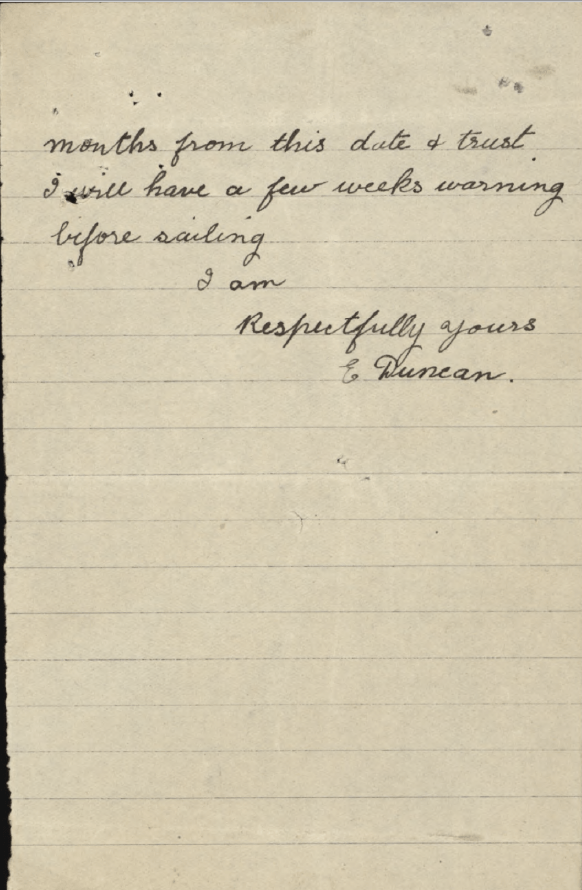 months from this date & trust
I will have a few weeks warning
before sailing
I am
Respectfully yours
E Duncan.